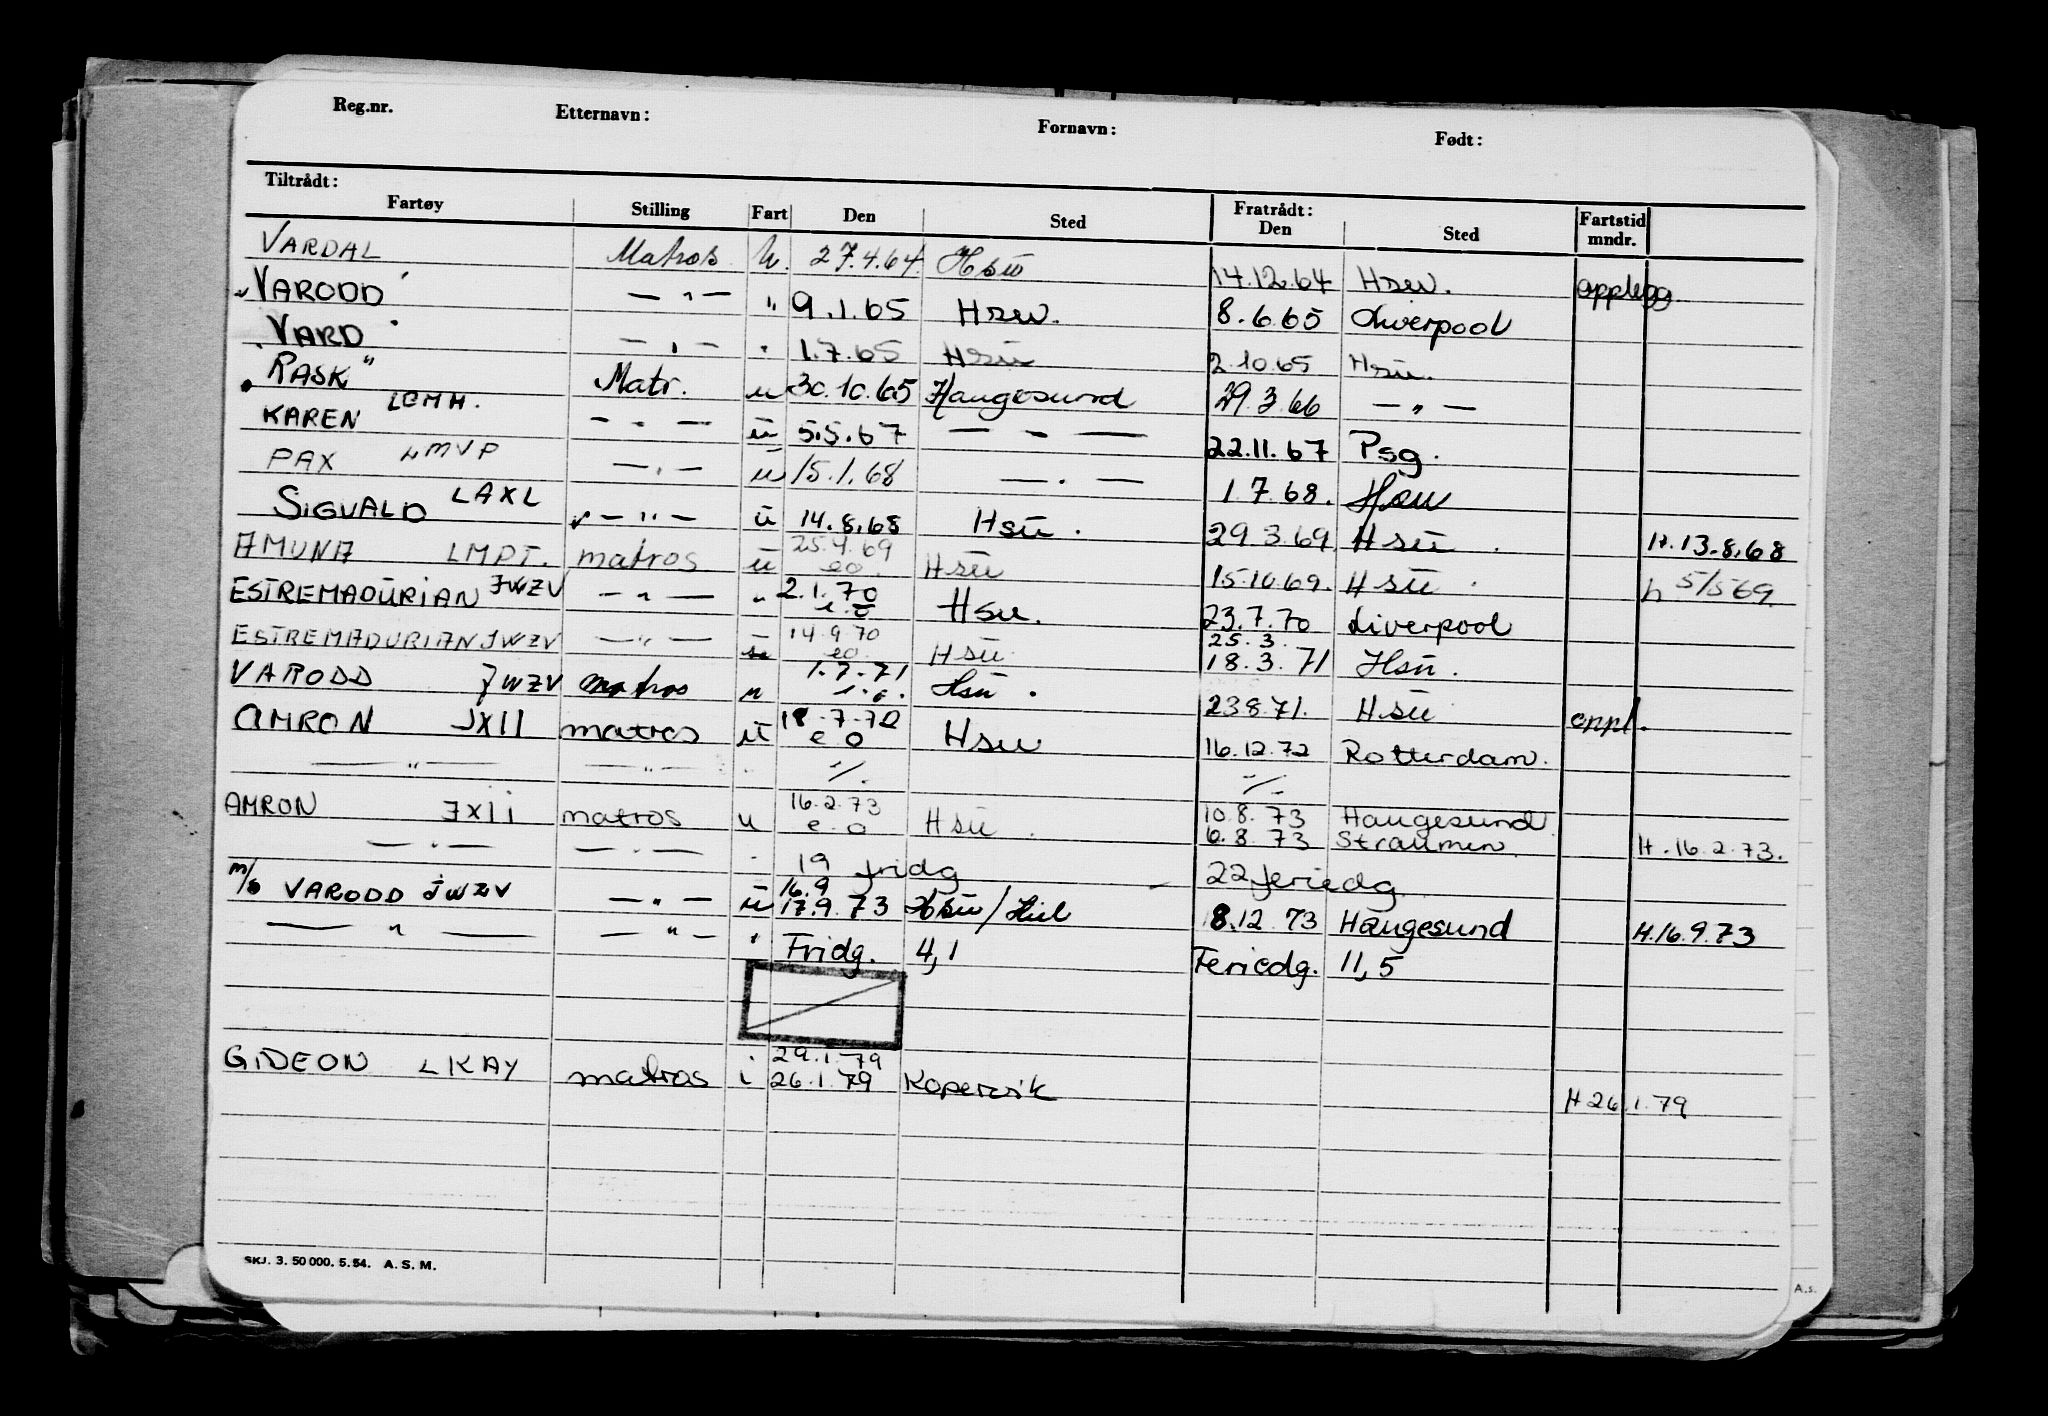 Reg.nr. Etternavn: Fornavn: Født:
Tiltrådt: Fratrådt:
Fartøy Stilling Fart Den Sted Den Sted Fartstid mndr.
VARDAL Matros u. 27.4.64 Hsu 14.12.64 Hsu. opplegg
VARODD — " — " 9.1.65 Hsu. 8.6.65 Liverpool
VARD — " — " 1.7.65 Hsu 2.10.65 Hsu.
RASK Matr. u 30.10.65 Haugesund 29.3.66 — " —
KAREN LCMH. — " — u 5.5.67 — " — 22.11.67 Psg.
PAX LMVP — " — u 15.1.68 — " — 1.7.68. Hsu
SIGVALD LAXL — " — u 14.8.68 Hsu. 29.3.69 Hsu. H.13.8.68
AMUNA LMPT. matros u 25.4.69 eo. Hsu 15.10.69. Hsu. h 5/5 69.
ESTREMADURIAN JWZV — " — " 2.1.70 e.o Hsu. 23.7.70 Liverpool
ESTREMADURIAN JWZV — " — 14.9.70 eo. Hsu 25.3. 18.3.71 Hsu.
VARODD JWZV matros u 1.7.71 e.o. Hsu. 23.8.71. Hsu oppl.
AMRON JXII matros u 18-7-72 e o Hsu 16.12.72 Rotterdam.
— " — — " — " -/. -/.
AMRON JXII matros u 16.2.73 e.o Hsu. 10.8.73 Haugesund.
6.8.73 Straumen. H.16.2.73.
— " — — " — " 19 fridg 22 feriedg
m/s VARODD JWZV — " — u 16.9 17.9.73 Hsu/Hiet 8.12.73 Haugesund H.16.9.73
— " — — " — " Fridg. 4,1 Feriedg. 11,5
GIDEON LKAY matros i 29.1.79 26.1.79 Kopervik H 26.1.79
SKJ. 3. 50 000. 5. 54. A. S. M.
A.s.